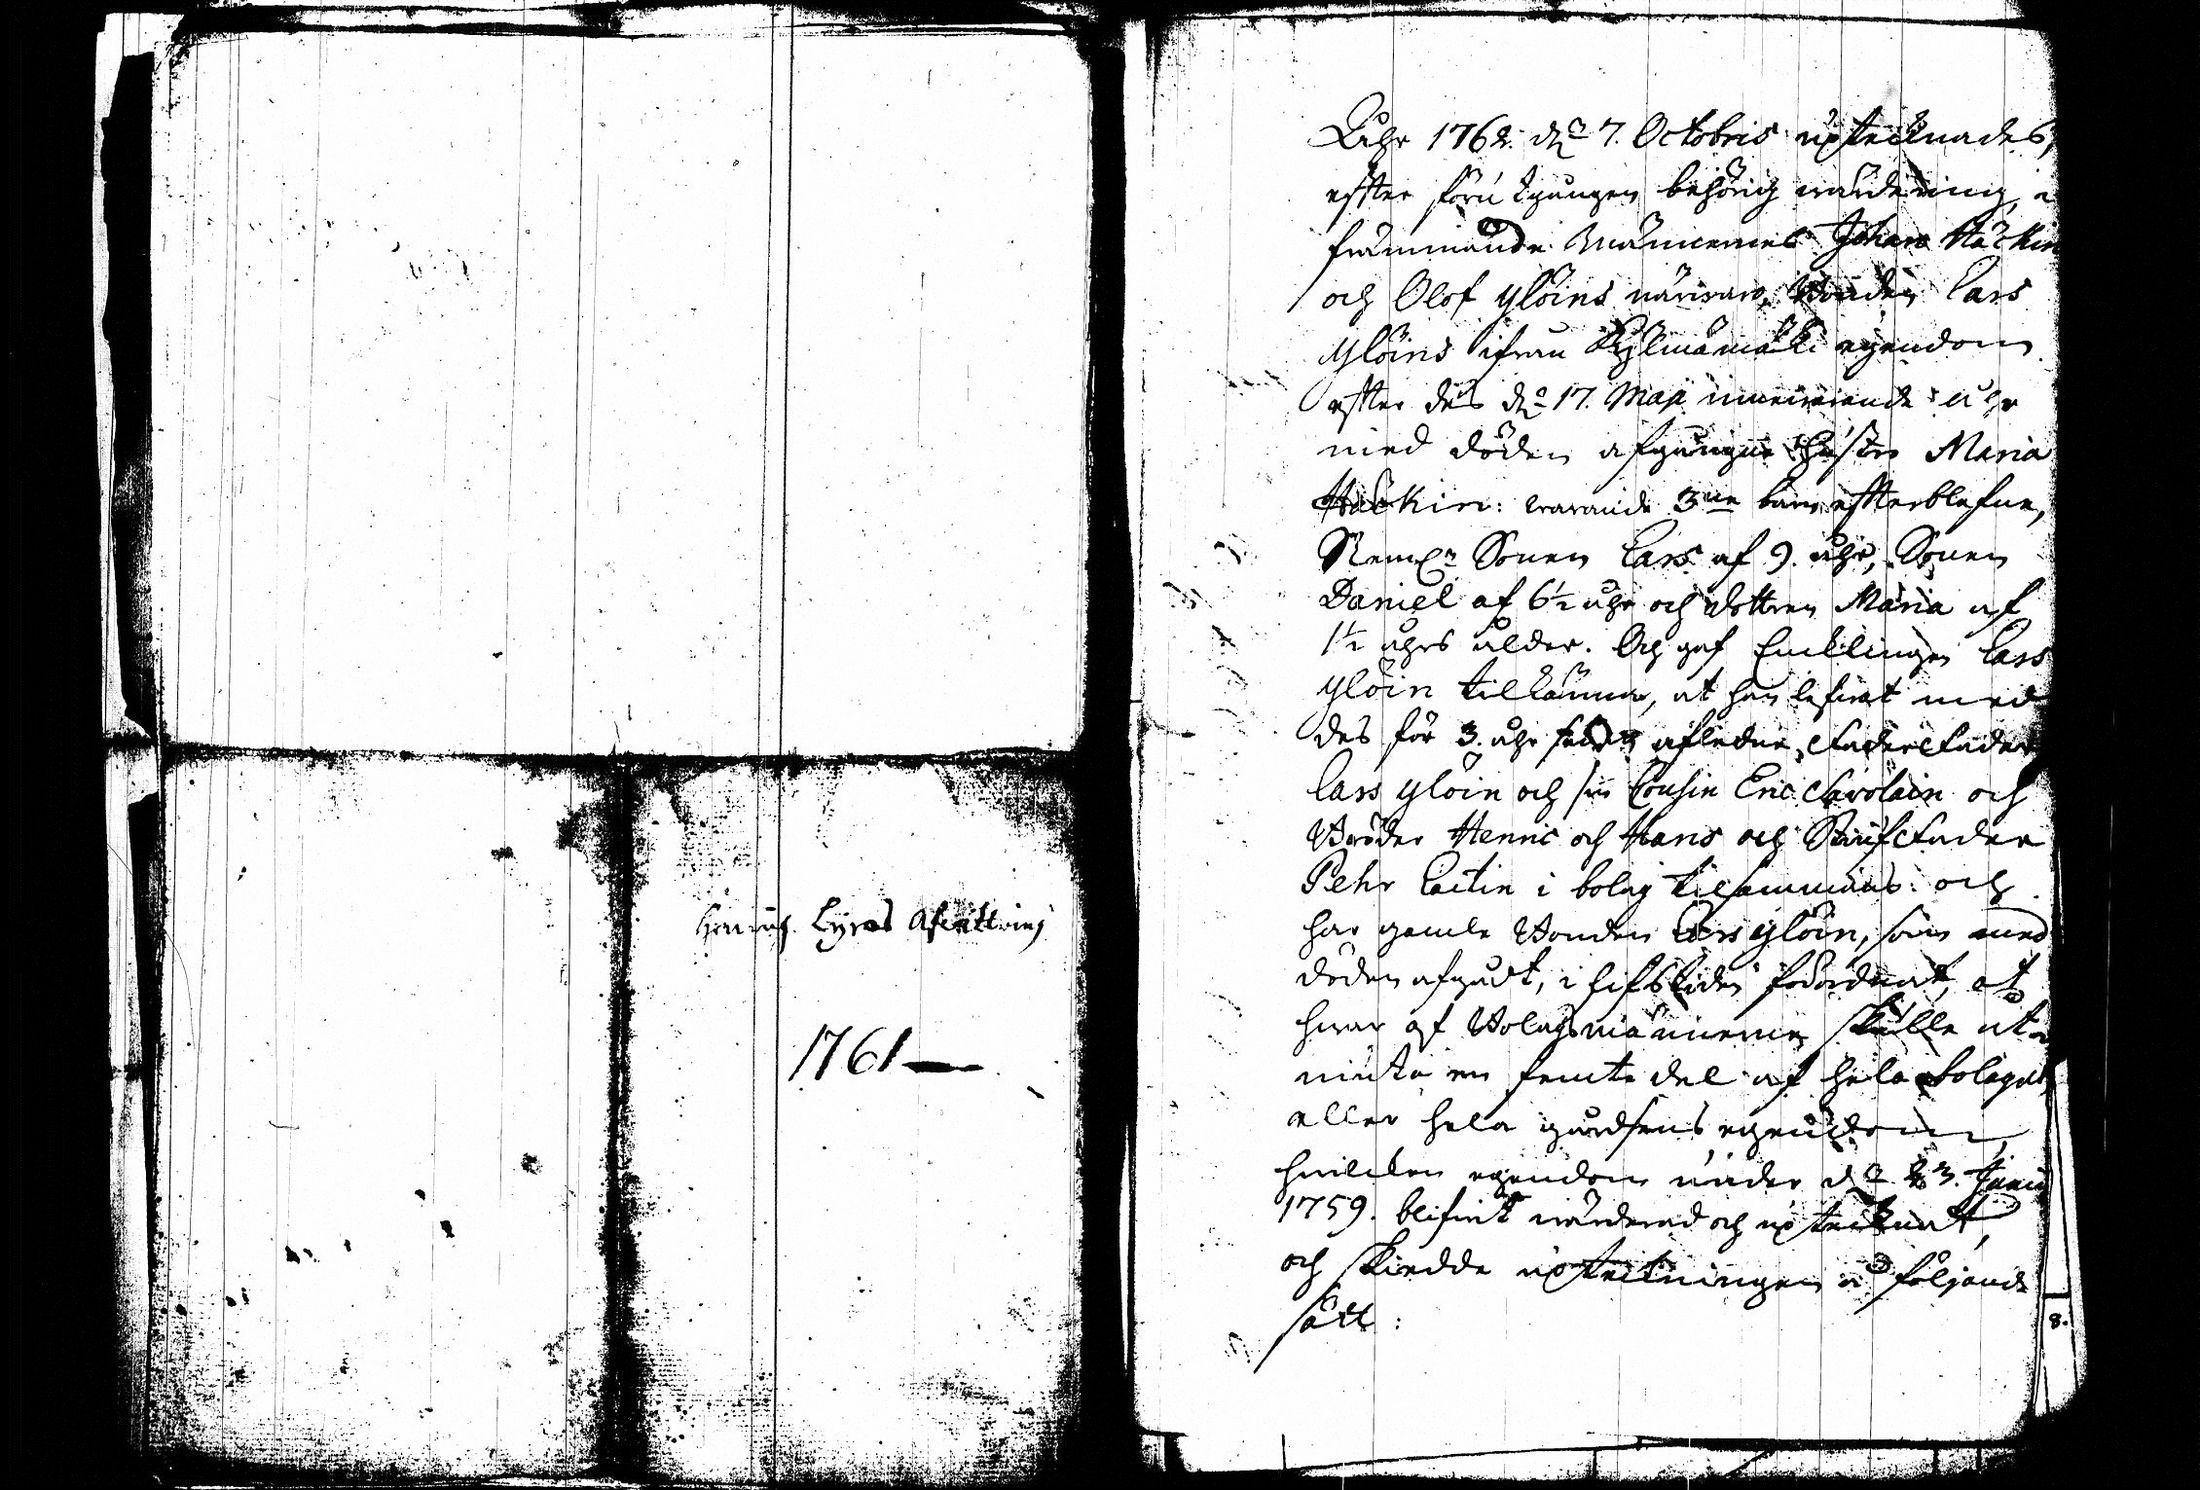 Lyras Afvittring
1761
Åhr 1762. dn 7. Octobris uptecknades,
efter föru gangen behörig wärdering, i
främmande Männernes Johan Häckin
och Olof Ylöins närwaro, Bonden Lars
Ylöins ifrån Kylmämäki egendom
efter des dn 17. Maji innewarande åhr
med döden afgångne hustru Maria
Häckin: warande 3ne barn efterblefne,
Neml:n Sonen Lars af 9. åhr, Sonen
Daniel af 6½ åhr och dottren Maria af
1½ åhrs ålder. Och gaf Enklingen Lars
Ylöin tilkänna, at han lefwat med
des för 3. åhr sedan afledne Faderfader
Lars Ylöin och sin Cousin Eric Savolain och
Bröder Henric och Hans och Stiuffader
Pehr Laitin i bolag tilsammans: och
har gamle Bonden Lars Ylöin, som med
döden afgådt, i lifstiden förordnat, at
hwar af Bolagsmännerne skulle åt-
niuta en femte del af hela bolaget
eller hela gårdsens egendom,
hwilcken egendom under dn 23. Junii
1759. blifwit wärderad och uptecknat,
och skiedde upteckningen å följande
sätt:
8.